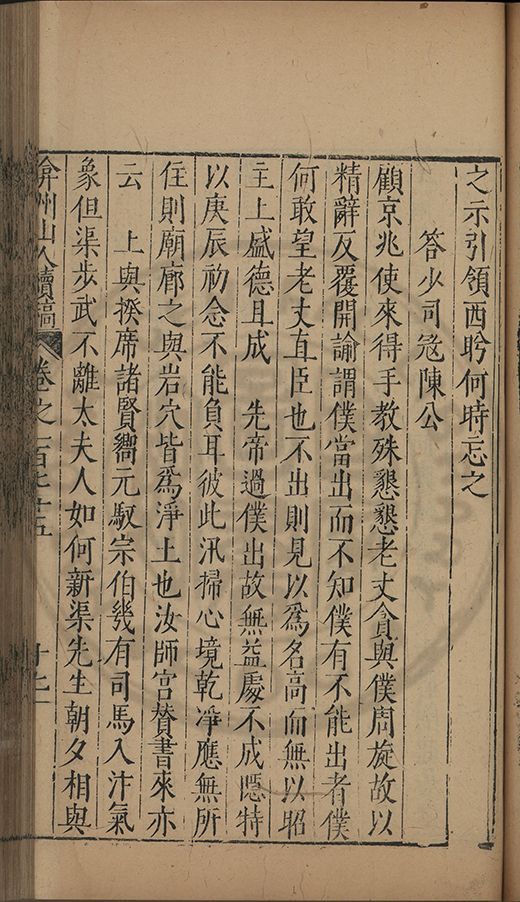 之示引領西盻何時忘之
答少司寇陳公
顧京兆使來得手教殊懇懇老丈貪與僕周旋故以
精辭反覆開諭謂僕當出而不知僕有不能出者僕
何敢望老丈直臣也不出則見以爲名高而無以昭
主上盛德且成 先帝過僕出故無益處不成隱特
以庚辰初念不能負耳彼此汛掃心境乾凈應無所
住則廟廊之與岩穴皆爲淨土也汝師宫賛書來亦
云 上與揆席諸賢嚮元馭宗伯幾有司馬入汴氣
象但渠步武不離太夫人如何新渠先生朝夕相與
弇州山人續稿 卷之一百七十五